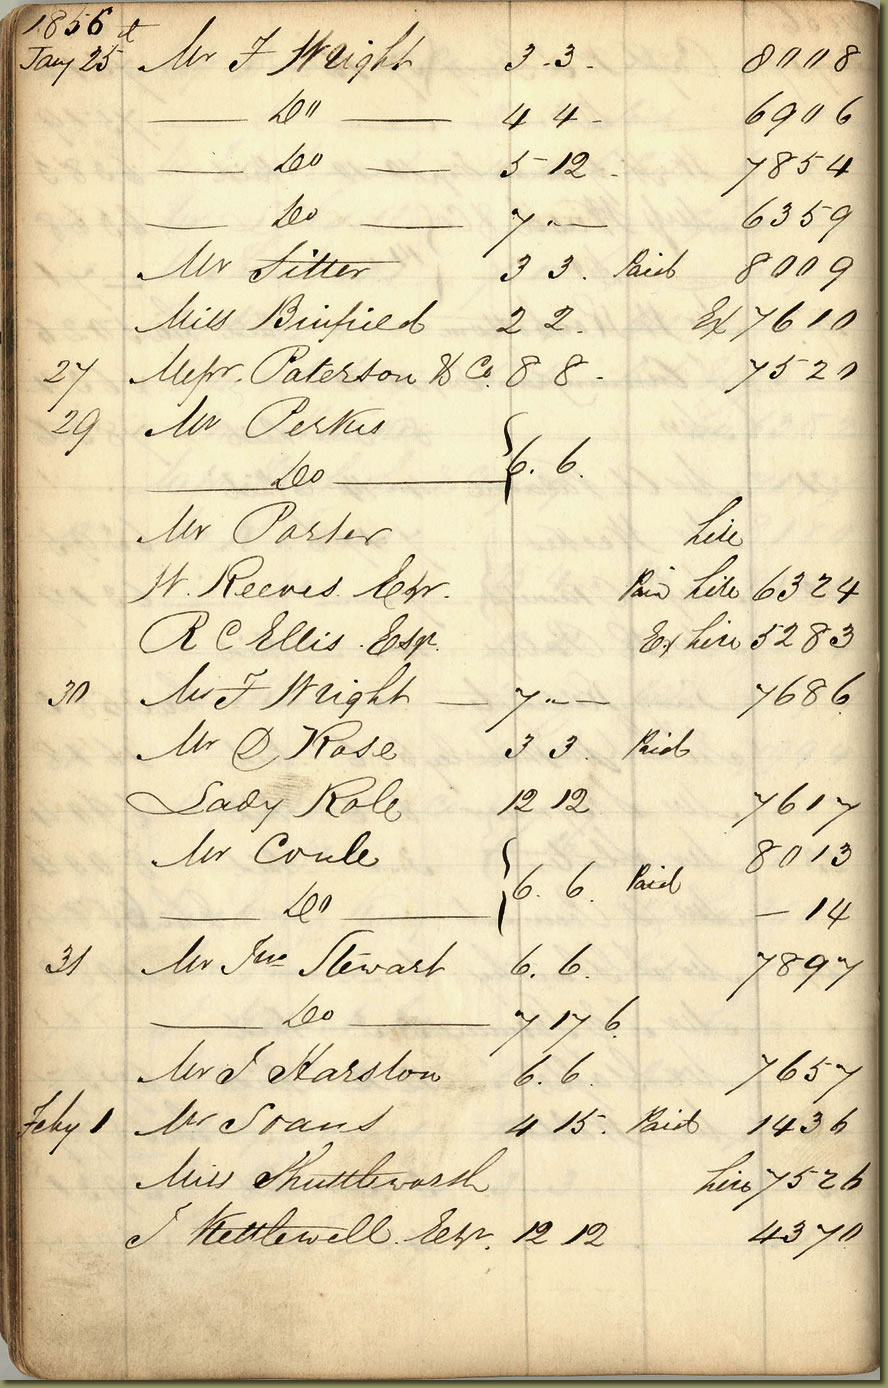 1856
Jany 25 Mr F Wright 3. 3. - 8008
Do 4 4 - 6906
Do 5 - 12 - 7854
Do 7 " - 6359
Mr Sitter 3 3. Paid 8009
Miss Binfield 2 2. Ex 7610
27 Messr. Paterson & Co. 8 8 - 7520
29 Mr Perkis
Do 6. 6.
Mr Porter hire
W. Reeves Esqr. Paid hire 6324
R C Ellis Esqr. Ex hire 5283
30 Mr F Wright 7 " - 7686
Mr D Rose 3 3. Paid
Lady Role 12 12 7617
Mr Coule 8013
6. 6. Paid
Do - 14
31 Mr Jno Stewart 6. 6. 7897
Do 7 17 6.
Mr J Harston 6. 6. 7657
Feby 1 Mr Soans 4 15. Paid 1436
Miss Shuttleworth hire 7526
J Kettlewell Esqr. 12 12 4370